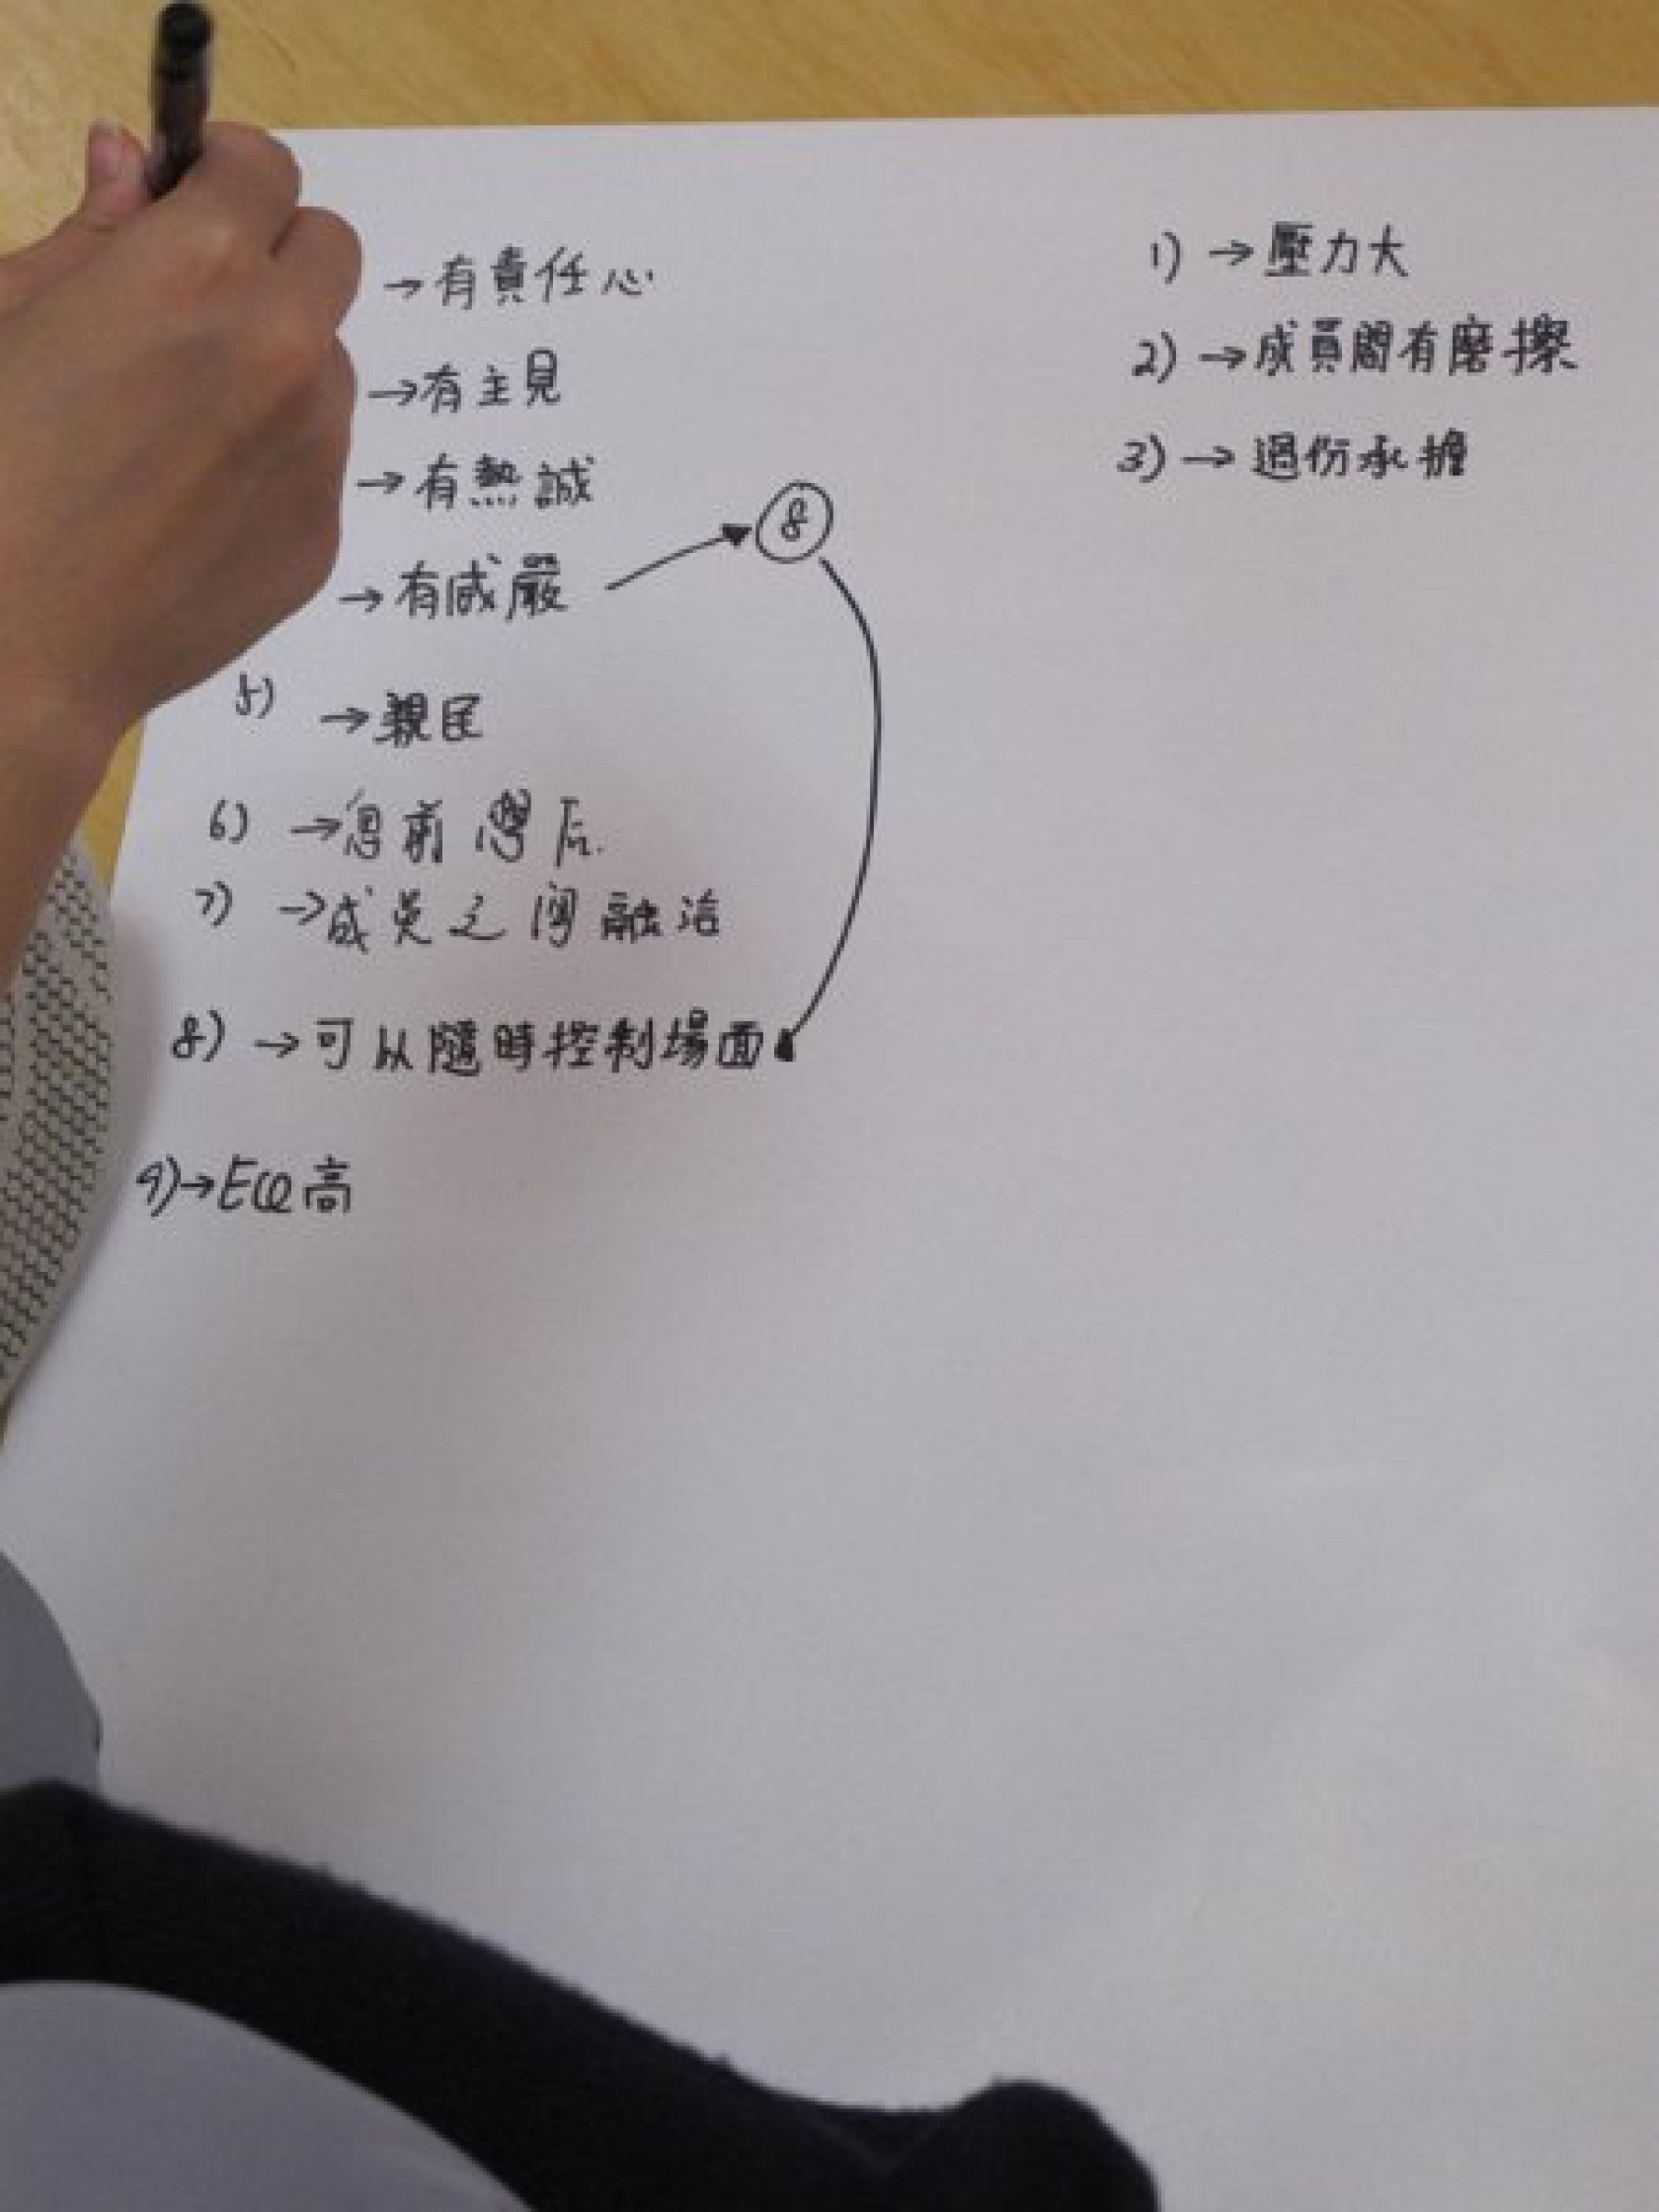 →有責任心
→有主見
→有熱誠
→有威嚴
⑧
5) →親民
6) →思前想后
7) →成员之间融洽
8) →可以隨時控制場面
9)→EQ高
1) →壓力大
2) →成員間有磨擦
3) →過份承擔